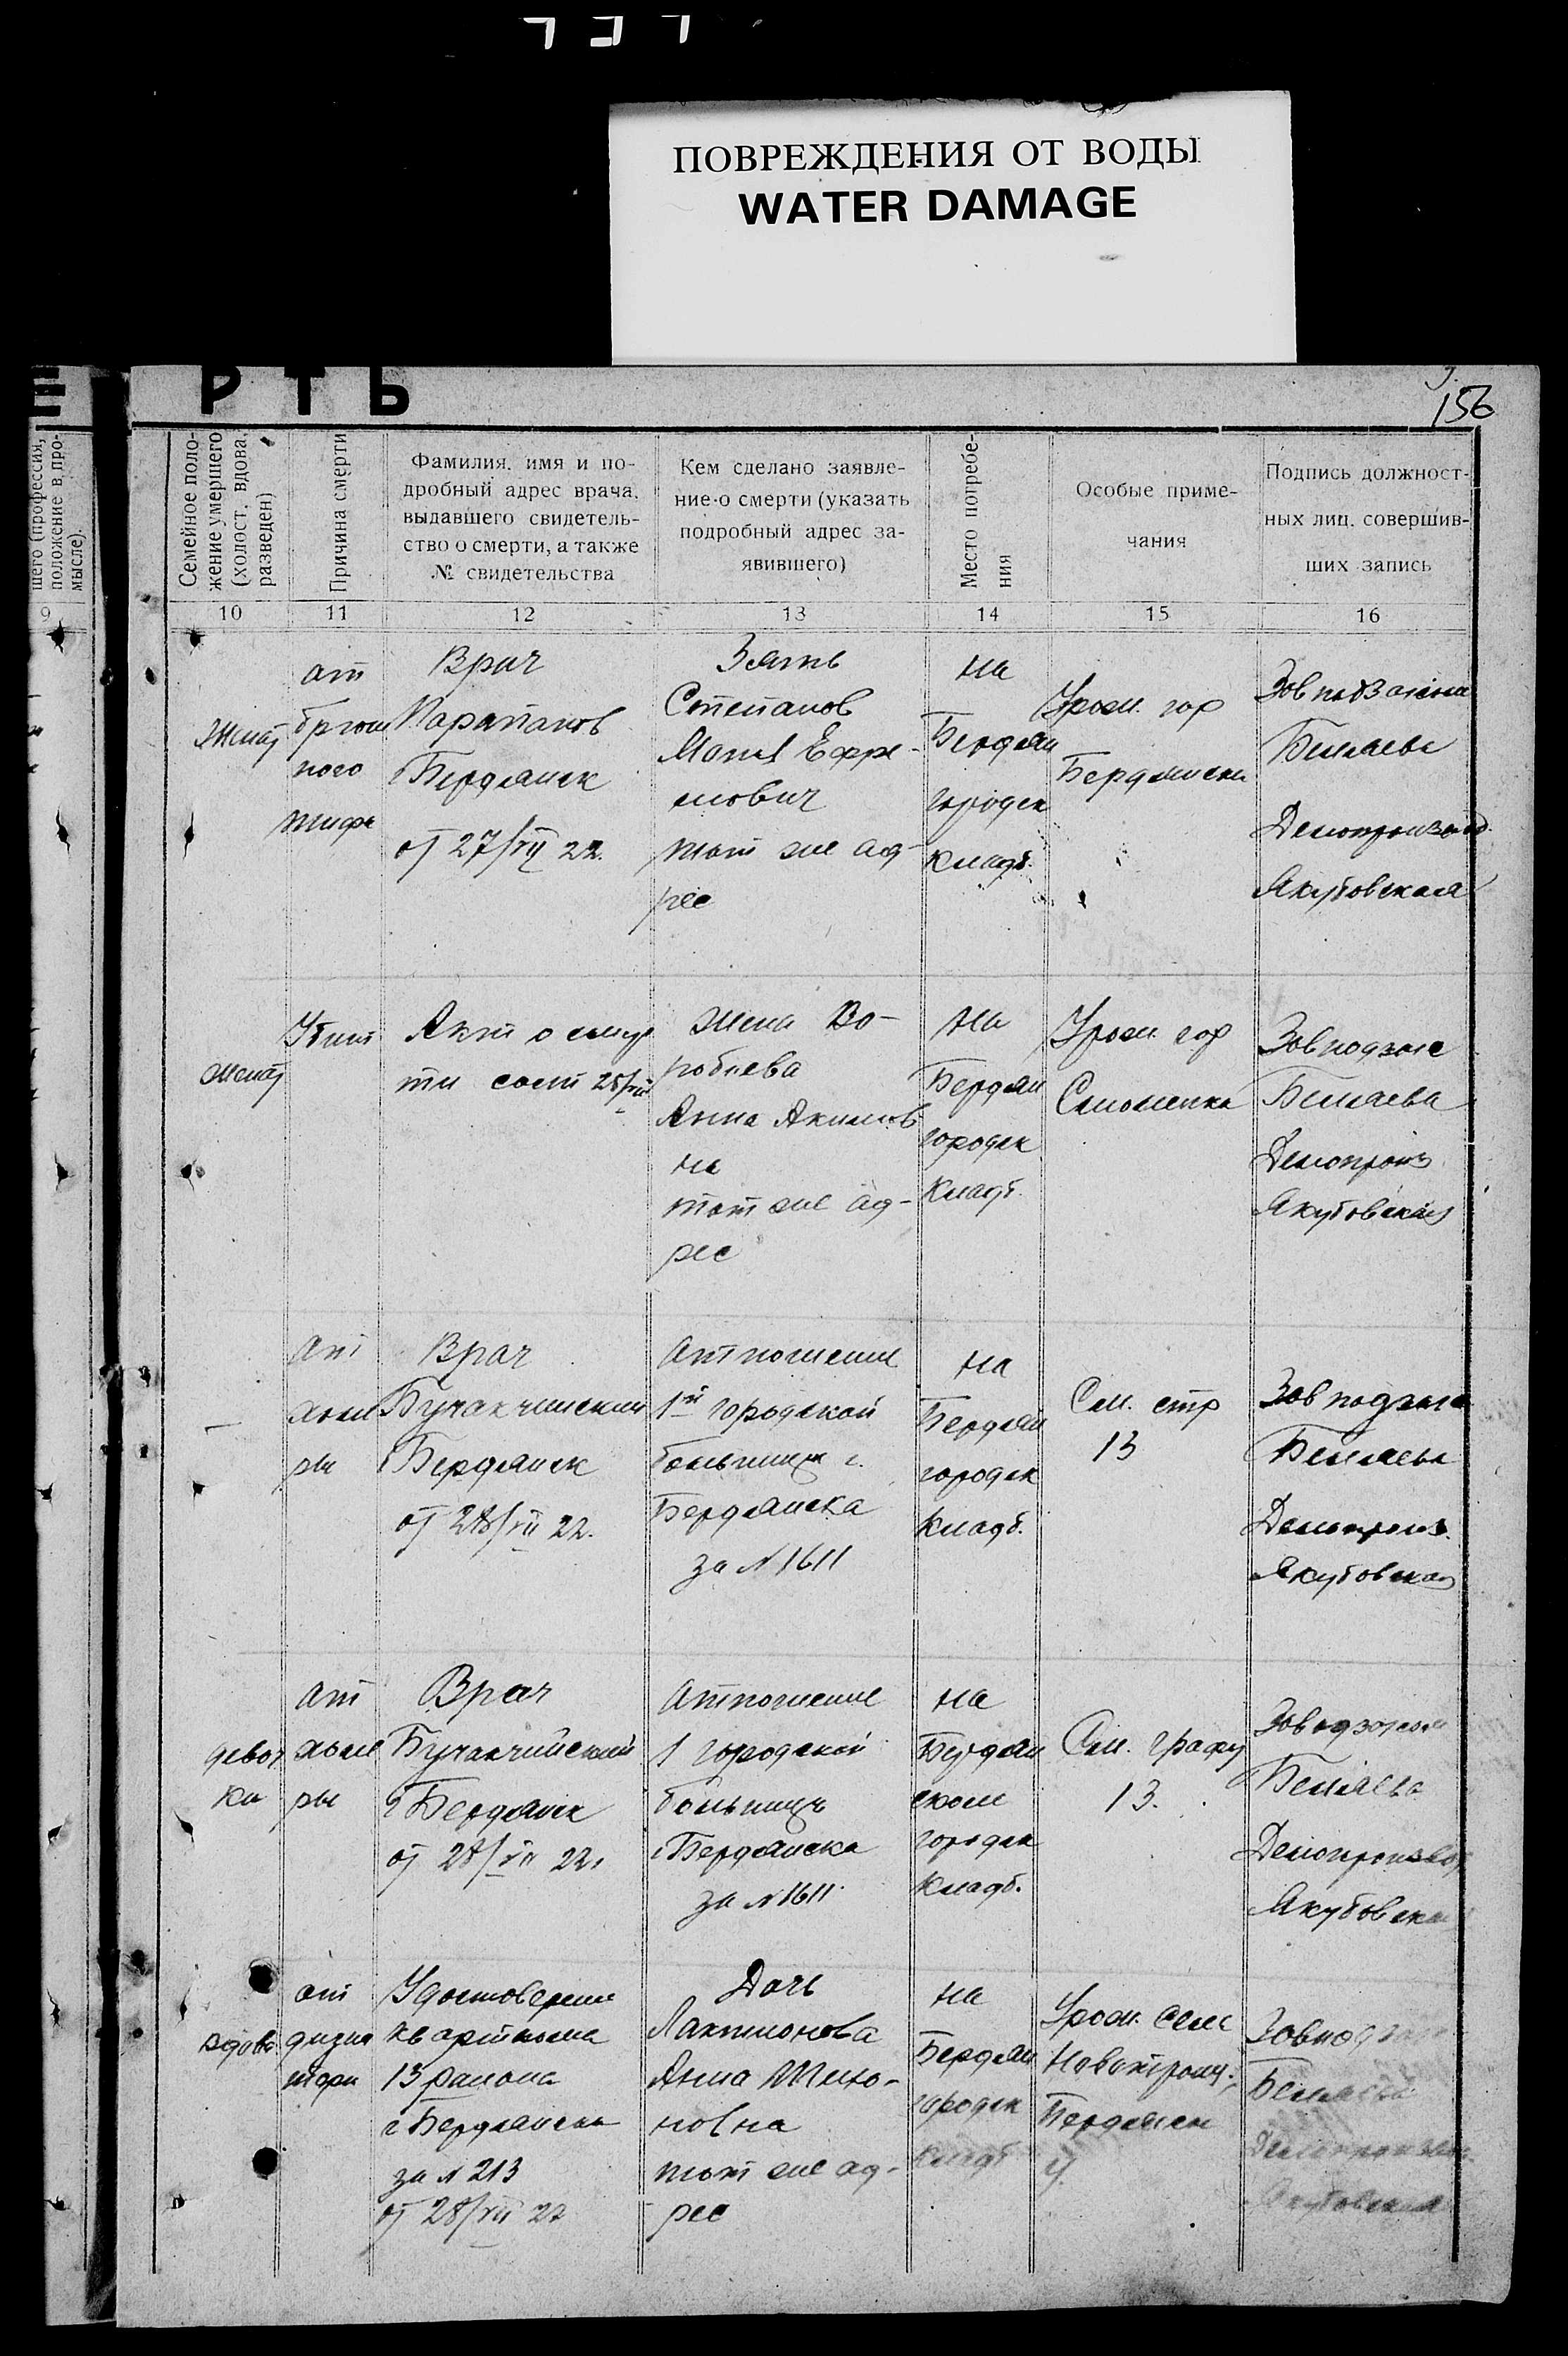 ПОВРЕЖДЕНИЯ ОТ ВОДЫ
WATER DAMAGE
Е РТЬ
156
шего (профессия,
положение в про-
мысле).
Семейное поло-
жение умершего
(холост. вдова.
разведен)
Причина смерти
Фамилия, имя и по-
дробный адрес врача,
выдавшего свидетель-
ство о смерти, а также
№ свидетельства
Кем сделано заявле-
ние о смерти (указать
подробный адрес за-
явившего)
Место погребе-
ния
Особые приме-
чания
Подпись должност-
ных лиц, совершив-
ших запись
9
10
11
12
13
14
15
16
женат
от
брюш
ного
тифа
Врач
Бердянск
от 27/VII 22.
Зять
Степанов
тот же ад-
рес
На
Бердян
городск
кладб.
Урож. гор
Бердянска
Беляева
Делопроизвод.
Якубовская
женат
Убит
Акт о смер
ти
жена Во-
робьева
Анна Акимов
на
тот же ад-
рес
На
Бердян
городск
кладб.
Урож. гор
Смоленка
Завподзагс
Беляева
Делопроиз
Якубовская
—
от
холе
ры
Врач
Бучакчийский
Бердянск
от 28/VII 22.
Отношение
1й городской
больницы г.
Бердянска
за N 1611
На
Бердян
городск
кладб.
См. стр
13
Завподзагс
Беляева
Делопроиз.
Якубовская
девоч
ка
от
холе
ры
Врач
Бучакчийский
г Бердянск
от 28/VII 22.
Отношение
1 городской
больницы
г Бердянска
за N 1611
На
Бердян
ском
городск
кладб.
См. графу
13.
Беляева
Делопроизвод
Якубовская
вдова
от
дизен
тери
Удостоверение
Кварткома
13 района
г Бердянска
за N 213
от 28/VII 22
Дочь
Лактионова
Анна Тихо-
новна
тот же ад-
рес
На
Бердян
городск
кладб
Урож. села
Бердянск
у.
Беляева
Якубовская